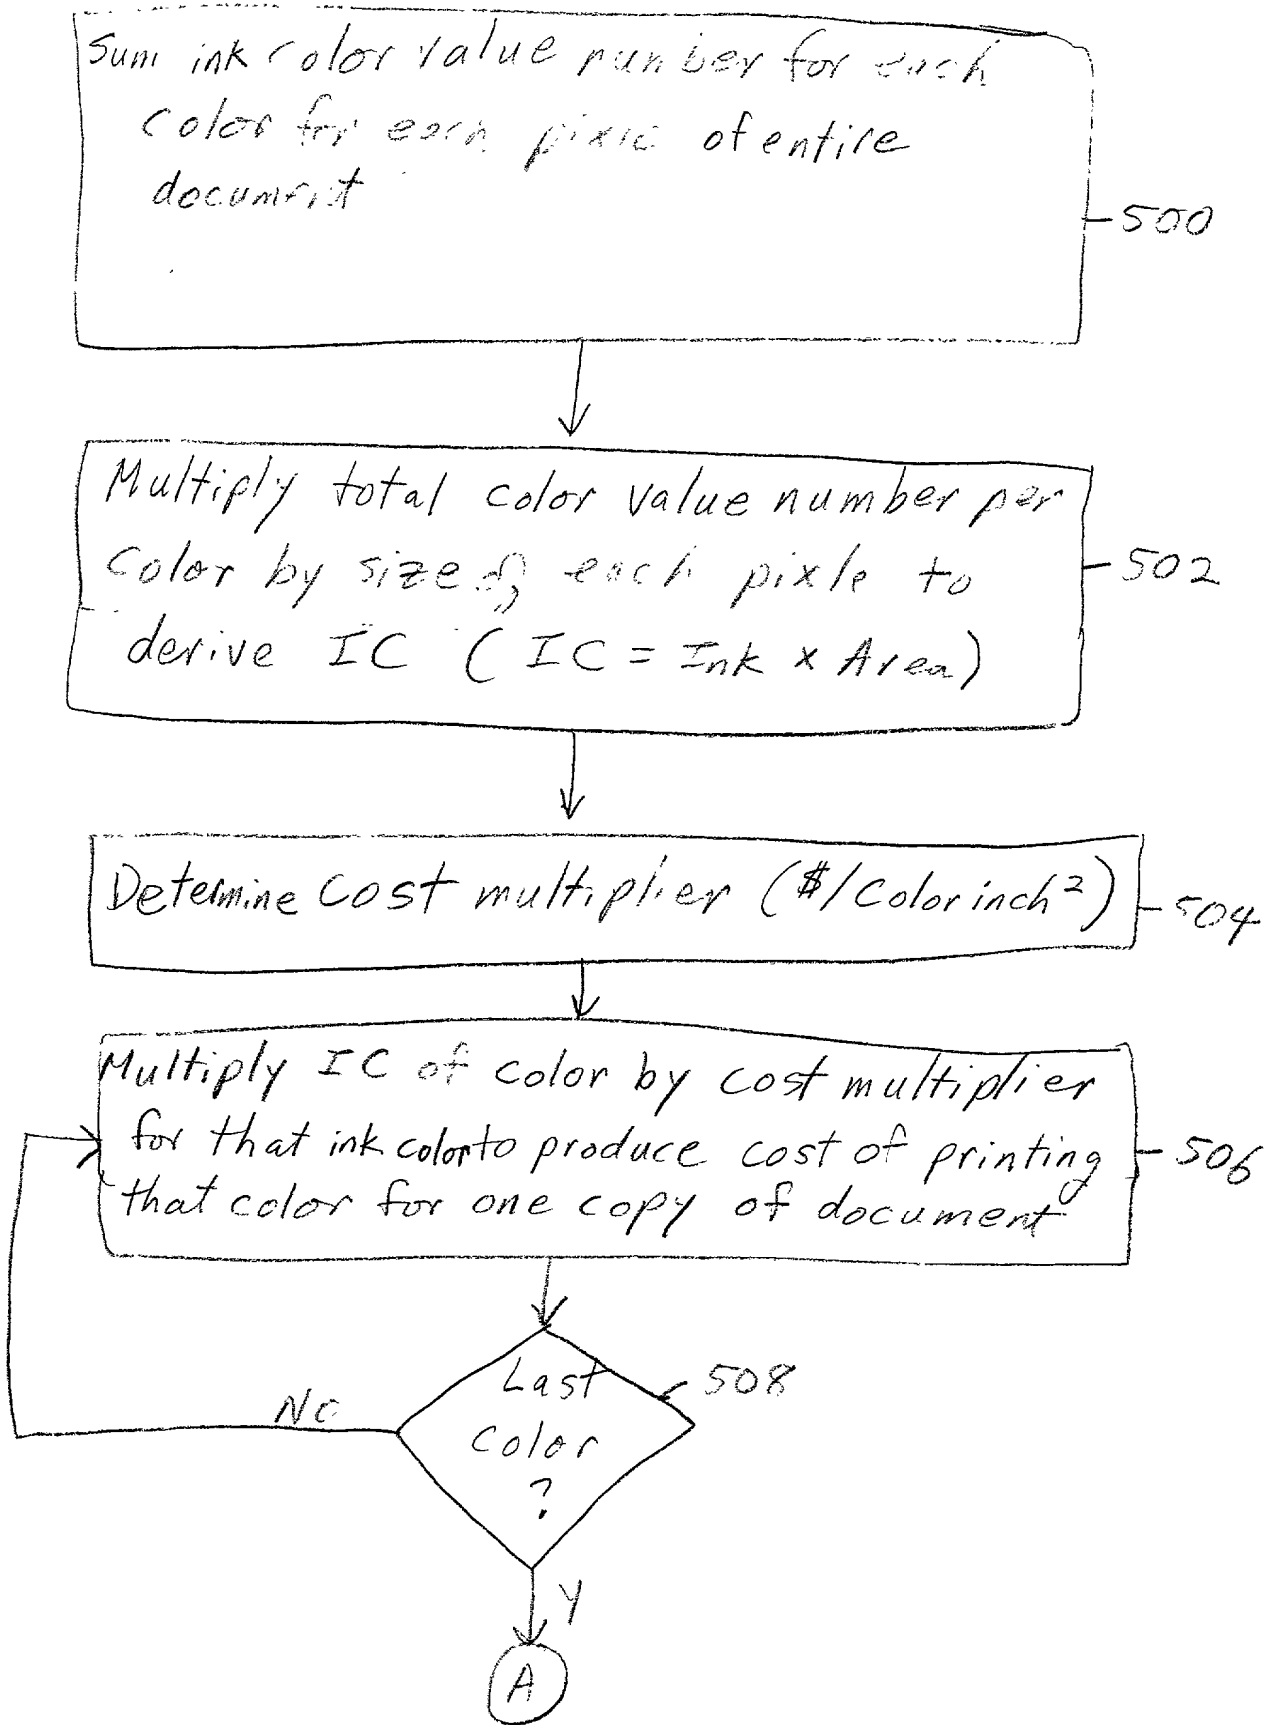 Sum ink color value number for each
color for each pixle of entire
document
500
Multiply total color value number per
color by size of each pixle to
derive IC (IC = Ink x Area)
502
Determine cost multiplier ($/Color inch²)
504
Multiply IC of color by cost multiplier
for that ink color to produce cost of printing
that color for one copy of document
506
Last
color
?
508
No
Y
A